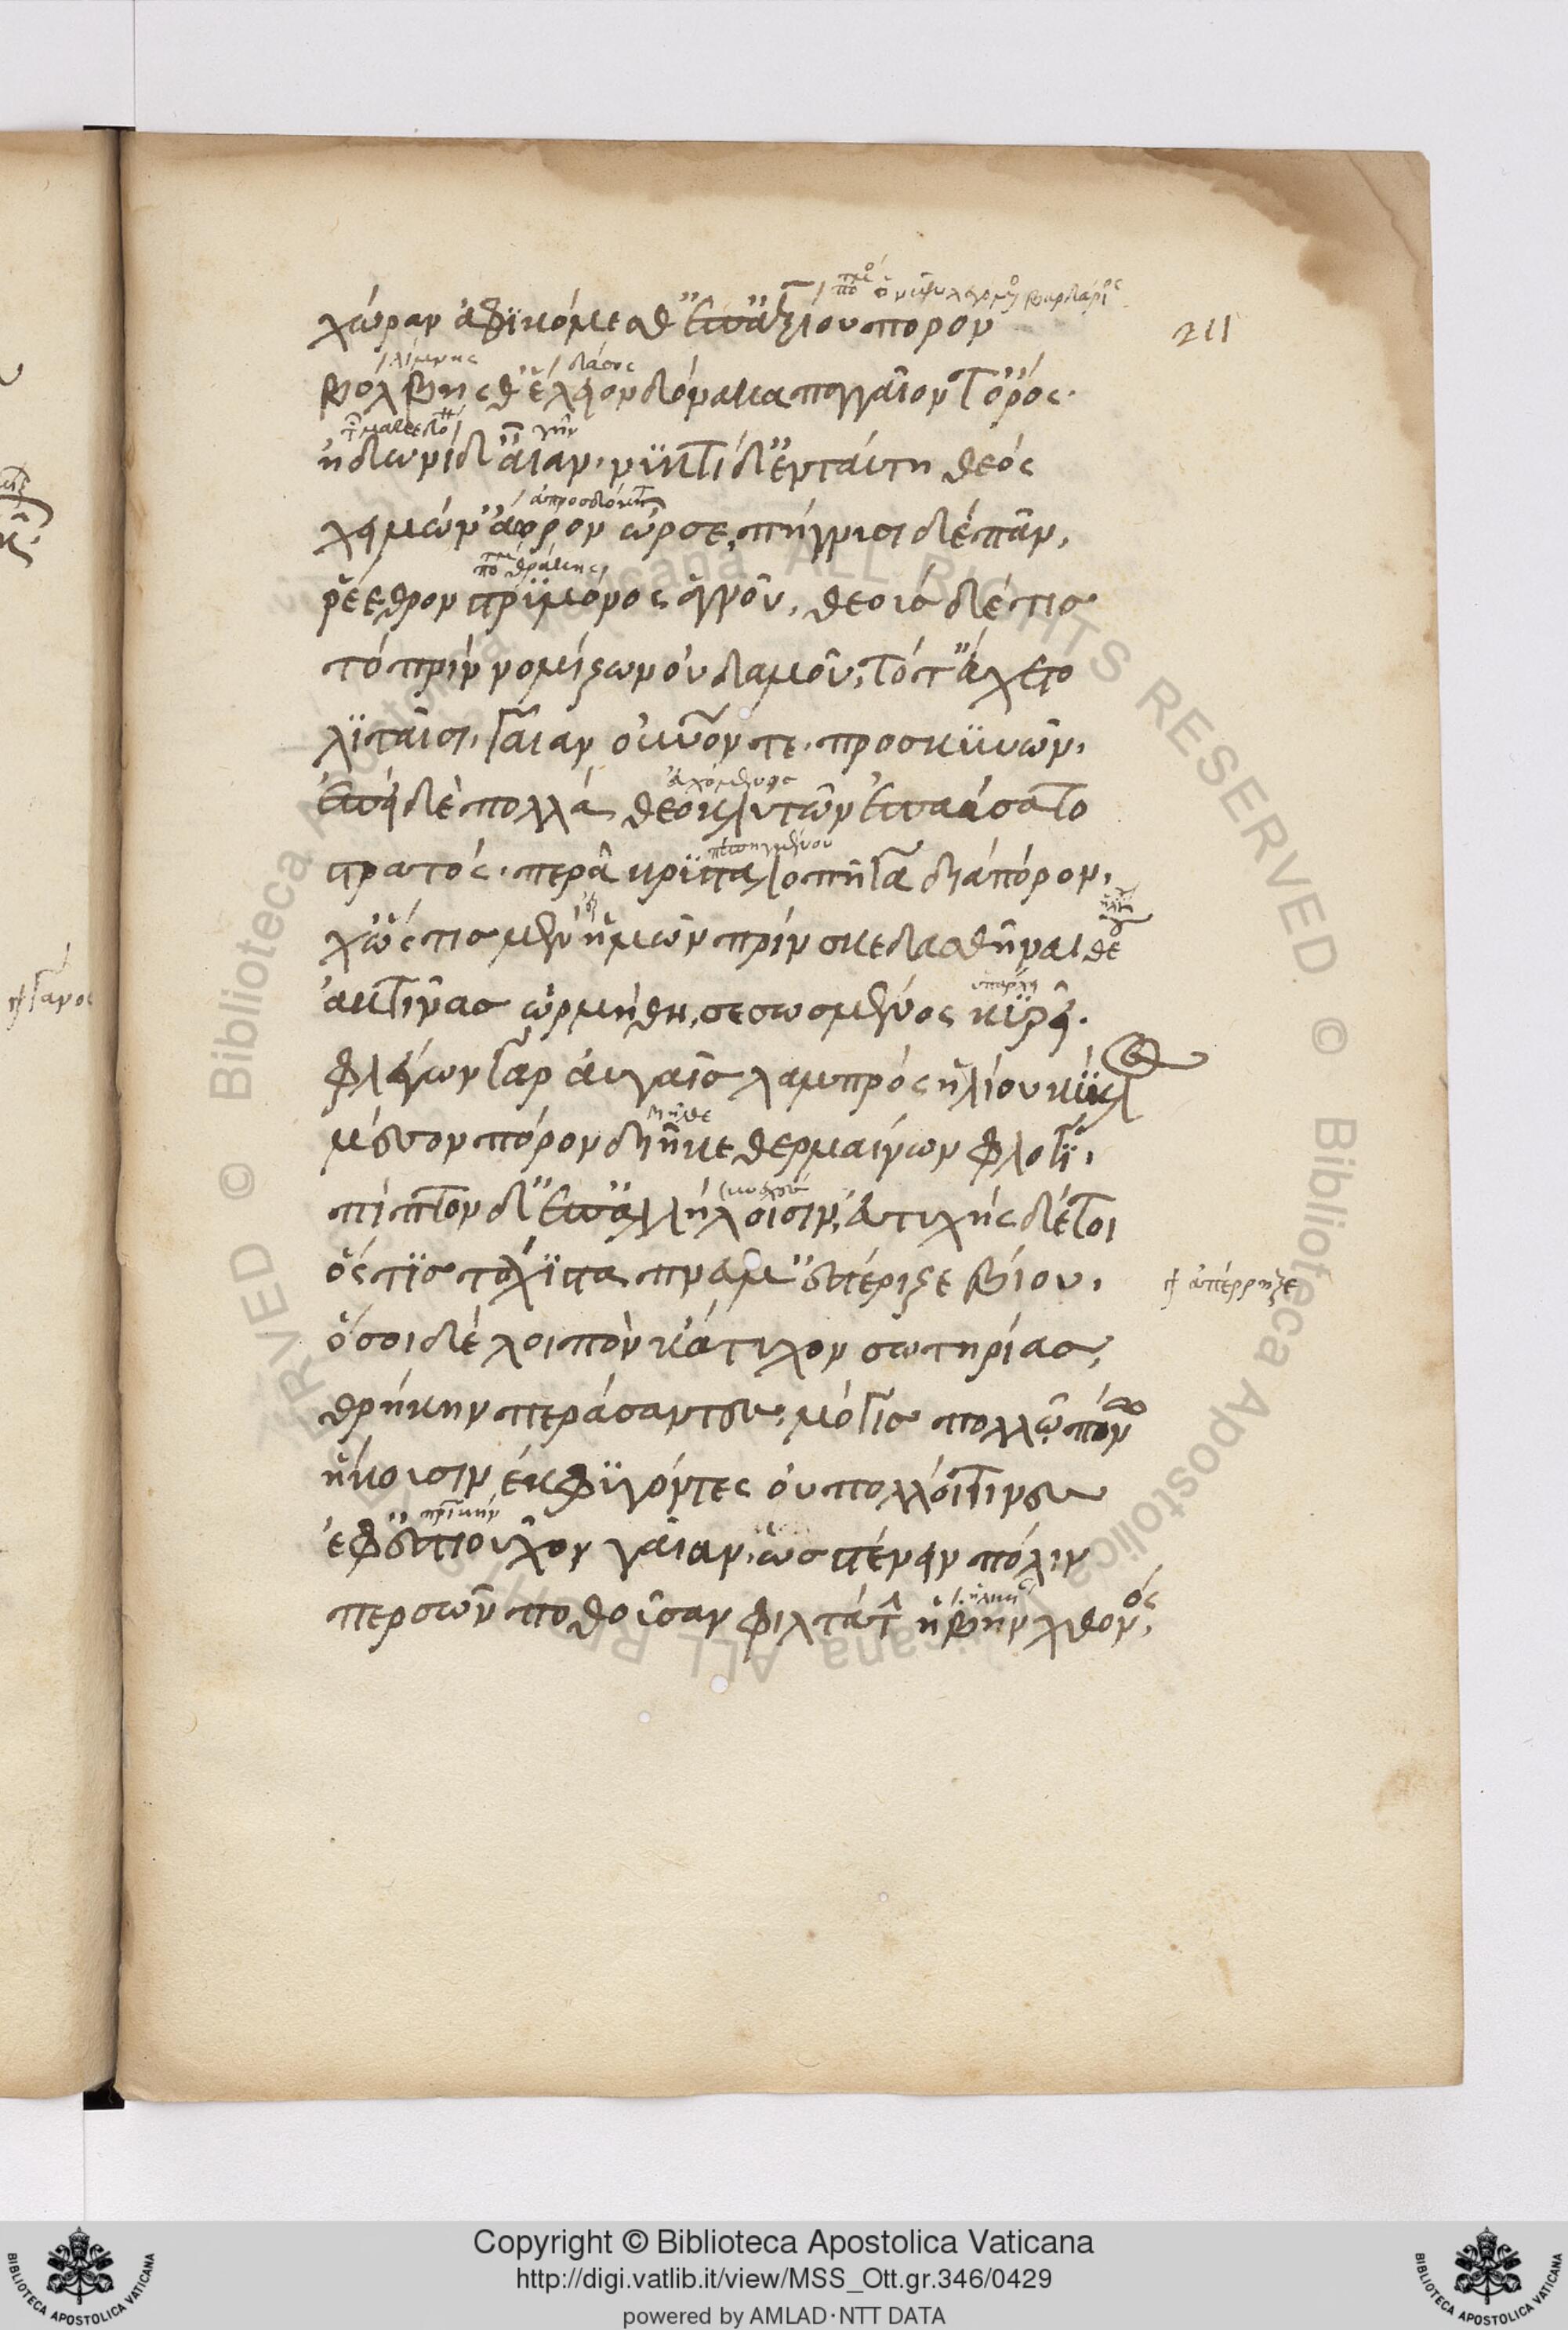 211
χώραν ἀφικόμεσθ' ἐπ' ἀξίου πόρον
λίμνης δάσος
βόλβης θ' ἕλειον δόνακα παγγαῖον τ' ὄρος·
γῆν
ἠδωνίδ' αἶαν· νυκτὶ δ' ἐν ταύτη θεός
χειμῶν' ἄωρον ὦρσε, πήγνυσι δὲ πᾶν,
ῥέεθρον στρυμόνος ἁγνοῦ, θεοὺς δέ τις
τὸ πρὶν νομίζων οὐδαμοῦ, τότ' εὔχετο
λιταῖσι, γαῖαν οὐνόν τε προσκυνῶν·
εὐχόμενος
ἐπεὶ δὲ πολλὰ θεοκλυτῶν ἐπαύσατο
πεπηγμένον
στρατός· περᾶ κρυσταλλοπῆγα διὰ πόρον,
χὥς τις μὲν ἡμῶν πρὶν σκεδασθῆναι θε
ἀκτῖνας ὡρμήθη, σεσωσμένος κυρεῖ·
φλέγων γὰρ αὐγαῖς λαμπρὸς ἡλίου κύκλ
μέσσον πόρον διῆκε θερμαίνων φλογί·
πίπτον δ' ἐπ' ἀλλήλοισιν, εὐτυχὴς δέ τοι
ὅς τις τάχιστα πνεῦμ' ἀπέριξε βίου·
ἀπέρρηξε
ὅσοι δὲ λοιποὶ κἄτυχον σωτηρίας,
θρήκην περάσαντες μόγις πολλῶ πόν
ἥκουσιν ἐκφυγόντες οὐ πολλοί τινες
ἐφ' ἑστιοῦχον γαῖαν, ὡς στένειν πόλιν
περσῶν ποθοῦσαν φιλτάτ ἥβην χθονός,
Copyright © Biblioteca Apostolica Vaticana
http://digi.vatlib.it/view/MSS_Ott.gr.346/0429
powered by AMLAD·NTT DATA